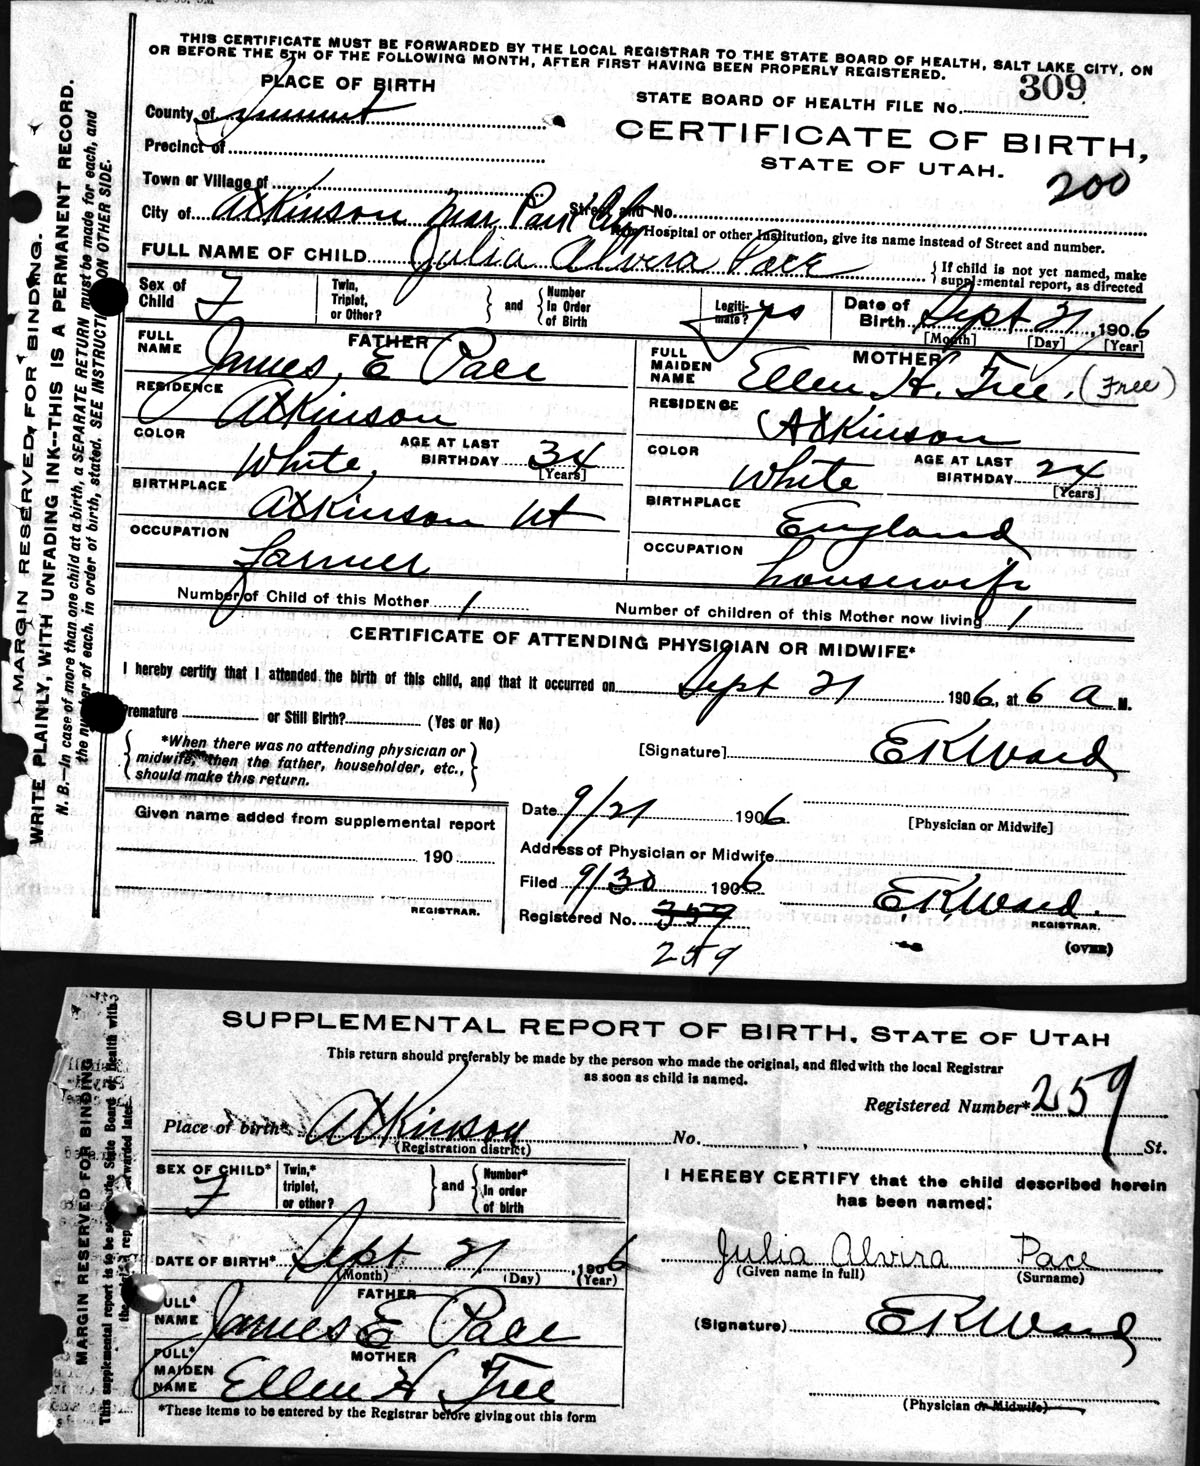 THIS CERTIFICATE MUST BE FORWARDED BY THE LOCAL REGISTRAR TO THE STATE BOARD OF HEALTH, SALT LAKE CITY, ON
OR BEFORE THE 5TH OF THE FOLLOWING MONTH, AFTER FIRST HAVING BEEN PROPERLY REGISTERED.
PLACE OF BIRTH
STATE BOARD OF HEALTH FILE No. 309
County of Summit
CERTIFICATE OF BIRTH,
Precinct of
STATE OF UTAH.
200
Town or Village of
City of Atkinson Near Park City Street and No.
Hospital or other Institution, give its name instead of Street and number.
FULL NAME OF CHILD Julia Alvira Pace { If child is not yet named, make supplemental report, as directed
Sex of Child F Twin, Triplet, or Other? } and { Number in Order of Birth Legitimate? yes Date of Birth Sept 21, 1906
[Month] [Day] [Year]
FATHER
FULL NAME James E Pace
MOTHER
FULL MAIDEN NAME Ellen H. Tree. (Free)
RESIDENCE Atkinson
RESIDENCE Atkinson
COLOR White, AGE AT LAST BIRTHDAY 34 [Years]
COLOR White AGE AT LAST BIRTHDAY 24 [Years]
BIRTHPLACE Atkinson Ut
BIRTHPLACE England
OCCUPATION Farmer
OCCUPATION Housewife
Number of Child of this Mother 1 Number of children of this Mother now living 1
CERTIFICATE OF ATTENDING PHYSICIAN OR MIDWIFE*
I hereby certify that I attended the birth of this child, and that it occurred on Sept 21 1906, at 6 a M.
Premature or Still Birth? (Yes or No)
{ *When there was no attending physician or midwife, then the father, householder, etc., should make this return. }
[Signature] E K Ward
[Physician or Midwife]
Given name added from supplemental report
190
REGISTRAR.
Date 9/21 1906
Address of Physician or Midwife
Filed 9/30 1906 E. K. Ward.
REGISTRAR.
Registered No. 357
259
(OVER)
MARGIN RESERVED FOR BINDING.
WRITE PLAINLY, WITH UNFADING INK--THIS IS A PERMANENT RECORD.
N. B.—In case of more than one child at a birth, a SEPARATE RETURN must be made for each, and
the number of each, in order of birth, stated. SEE INSTRUCTIONS ON OTHER SIDE.
SUPPLEMENTAL REPORT OF BIRTH, STATE OF UTAH
This return should preferably be made by the person who made the original, and filed with the local Registrar
as soon as child is named.
Registered Number* 259
Place of birth* Atkinson No. , St.
(Registration district)
SEX OF CHILD* F Twin,* triplet, or other? } and { Number* in order of birth
I HEREBY CERTIFY that the child described herein
has been named:
DATE OF BIRTH* Sept 21, 1906
(Month) (Day) (Year)
Julia Alvira Pace
(Given name in full) (Surname)
FATHER
FULL* NAME James E Pace
(Signature) E K Ward
MOTHER
FULL* MAIDEN NAME Ellen H Tree
(Physician or Midwife)
*These items to be entered by the Registrar before giving out this form
MARGIN RESERVED FOR BINDING